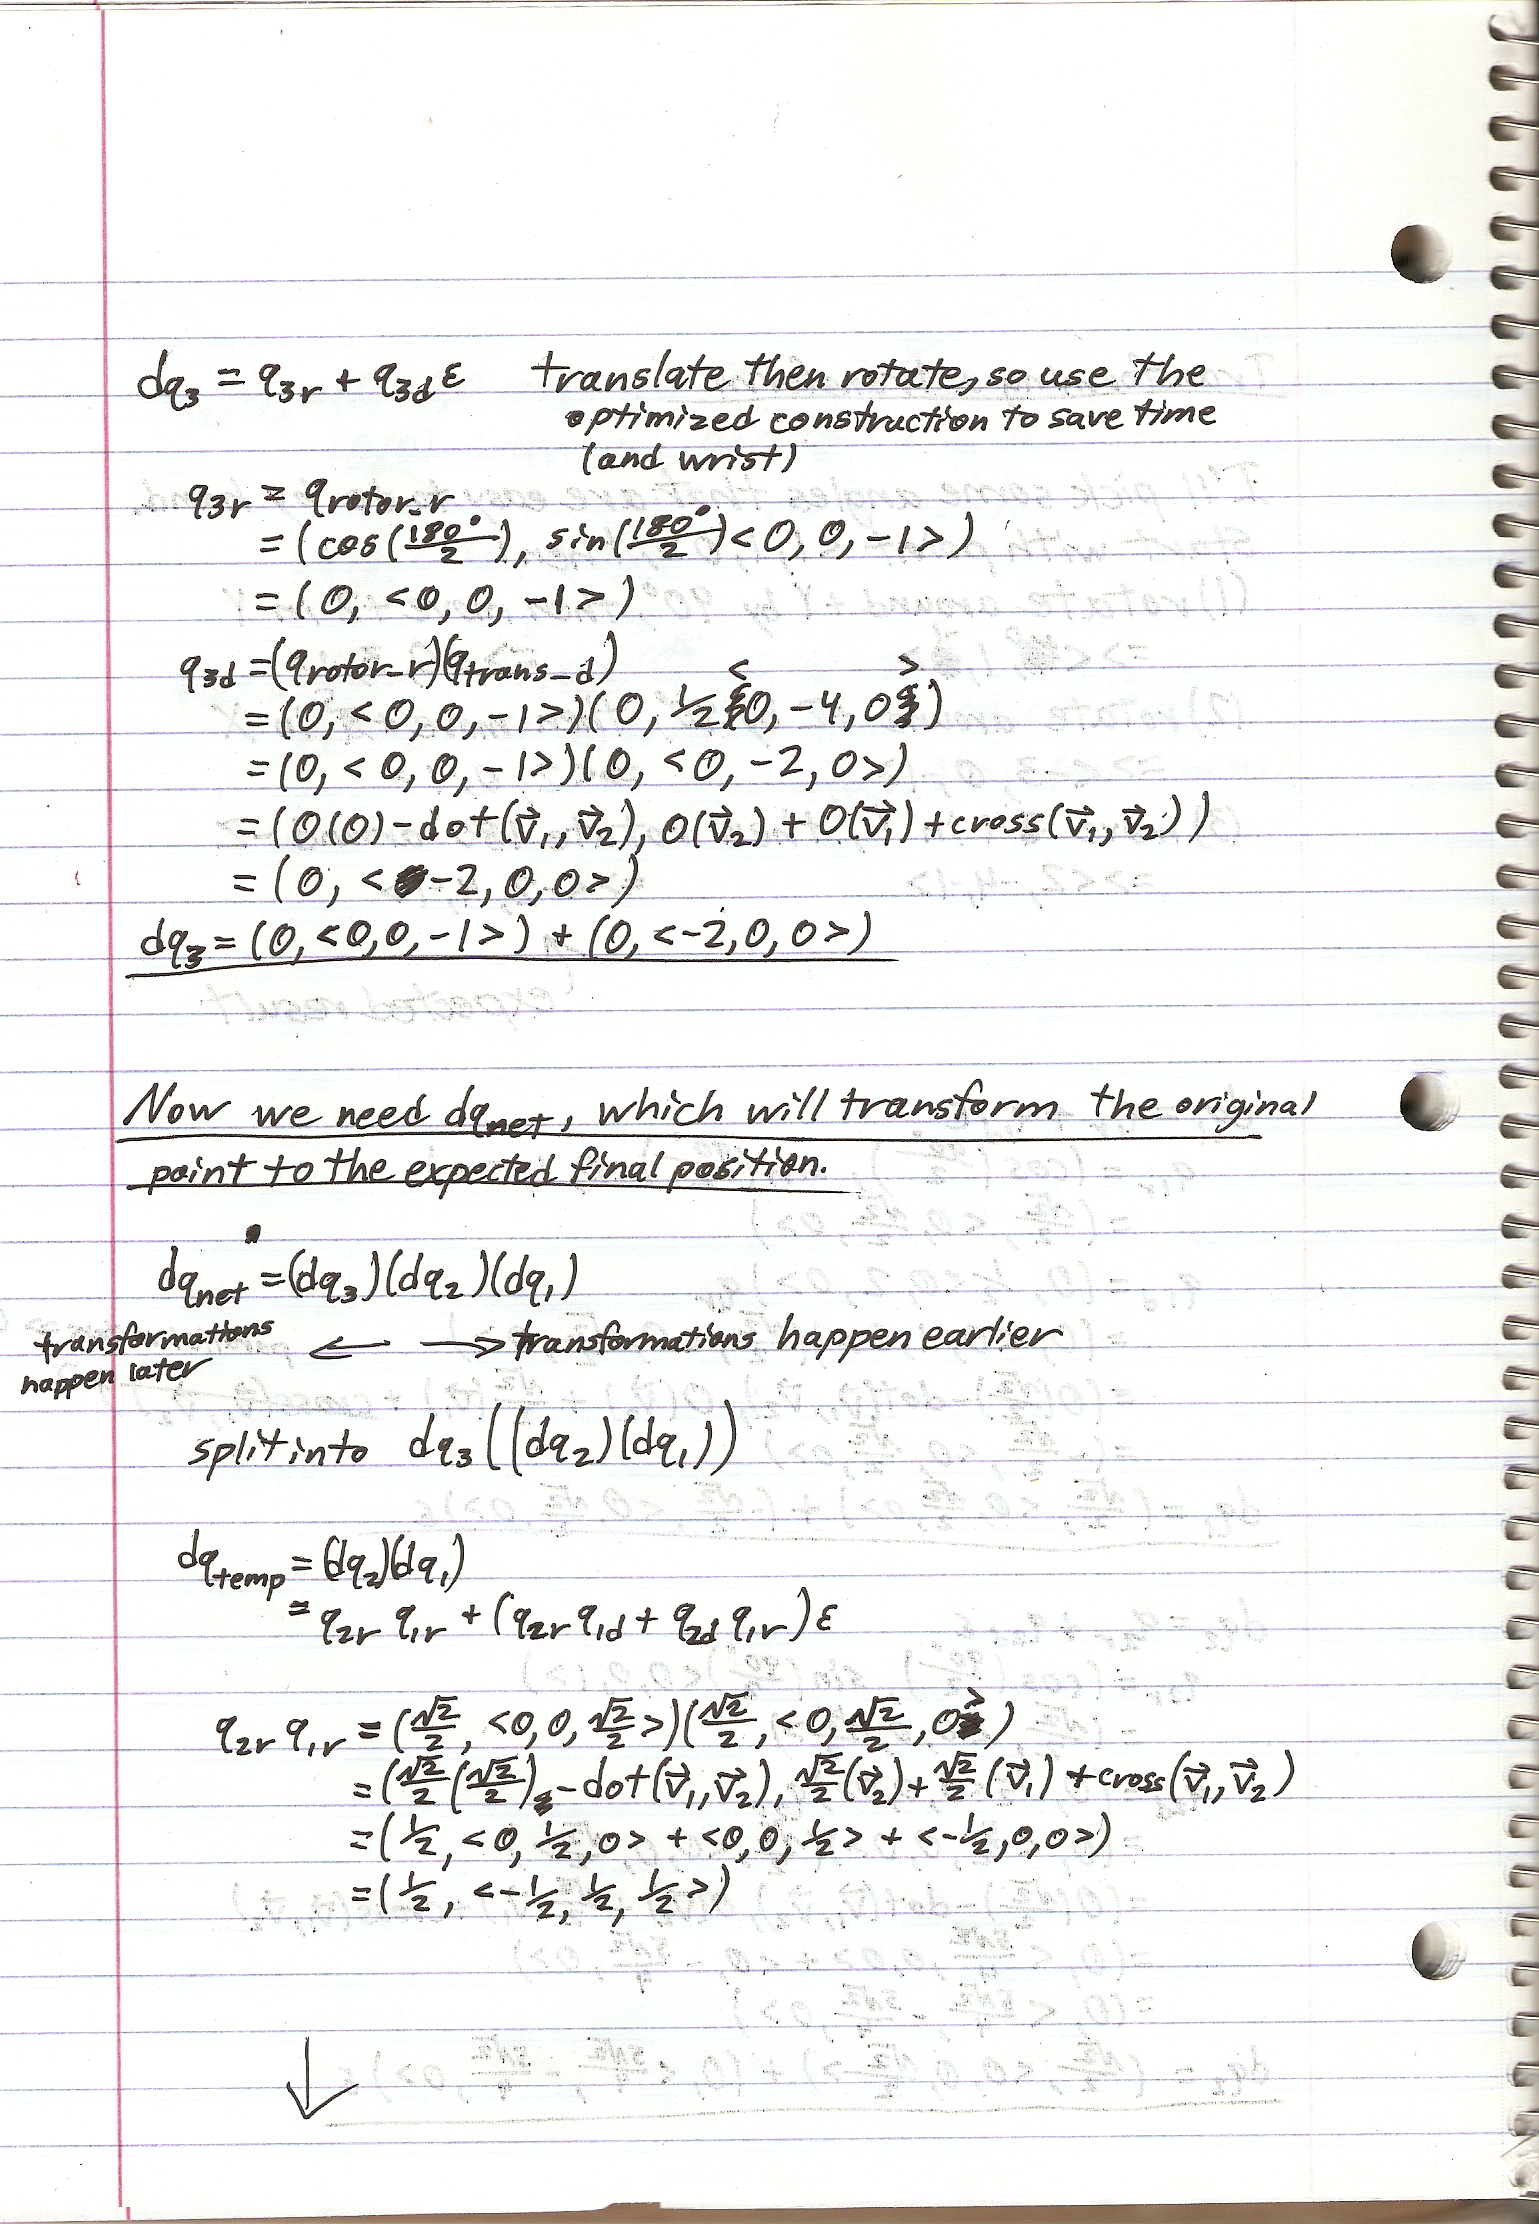 dq₃ = q₃r + q₃d ε translate then rotate, so use the
optimized construction to save time
(and wrist)
q₃r = qrotor_r
= (cos(180°/2), sin(180°/2)<0, 0, -1>)
= (0, <0, 0, -1>)
q₃d = (qrotor_r)(qtrans_d)
= (0, <0, 0, -1>)(0, ½<0, -4, 0>)
= (0, <0, 0, -1>)(0, <0, -2, 0>)
= (0(0) - dot(v⃗₁, v⃗₂), 0(v⃗₂) + 0(v⃗₁) + cross(v⃗₁, v⃗₂))
= (0, <-2, 0, 0>)
dq₃ = (0, <0, 0, -1>) + (0, <-2, 0, 0>)
Now we need dqnet, which will transform the original
point to the expected final position.
dqnet = (dq₃)(dq₂)(dq₁)
transformations happen later ← → transformations happen earlier
split into dq₃((dq₂)(dq₁))
dqtemp = (dq₂)(dq₁)
= q₂r q₁r + (q₂r q₁d + q₂d q₁r) ε
q₂r q₁r = (√2/2, <0, 0, √2/2>)(√2/2, <0, √2/2, 0>)
= (√2/2(√2/2) - dot(v⃗₁, v⃗₂), √2/2(v⃗₂) + √2/2(v⃗₁) + cross(v⃗₁, v⃗₂)
= (½, <0, ½, 0> + <0, 0, ½> + <-½, 0, 0>)
= (½, <-½, ½, ½>)
↓